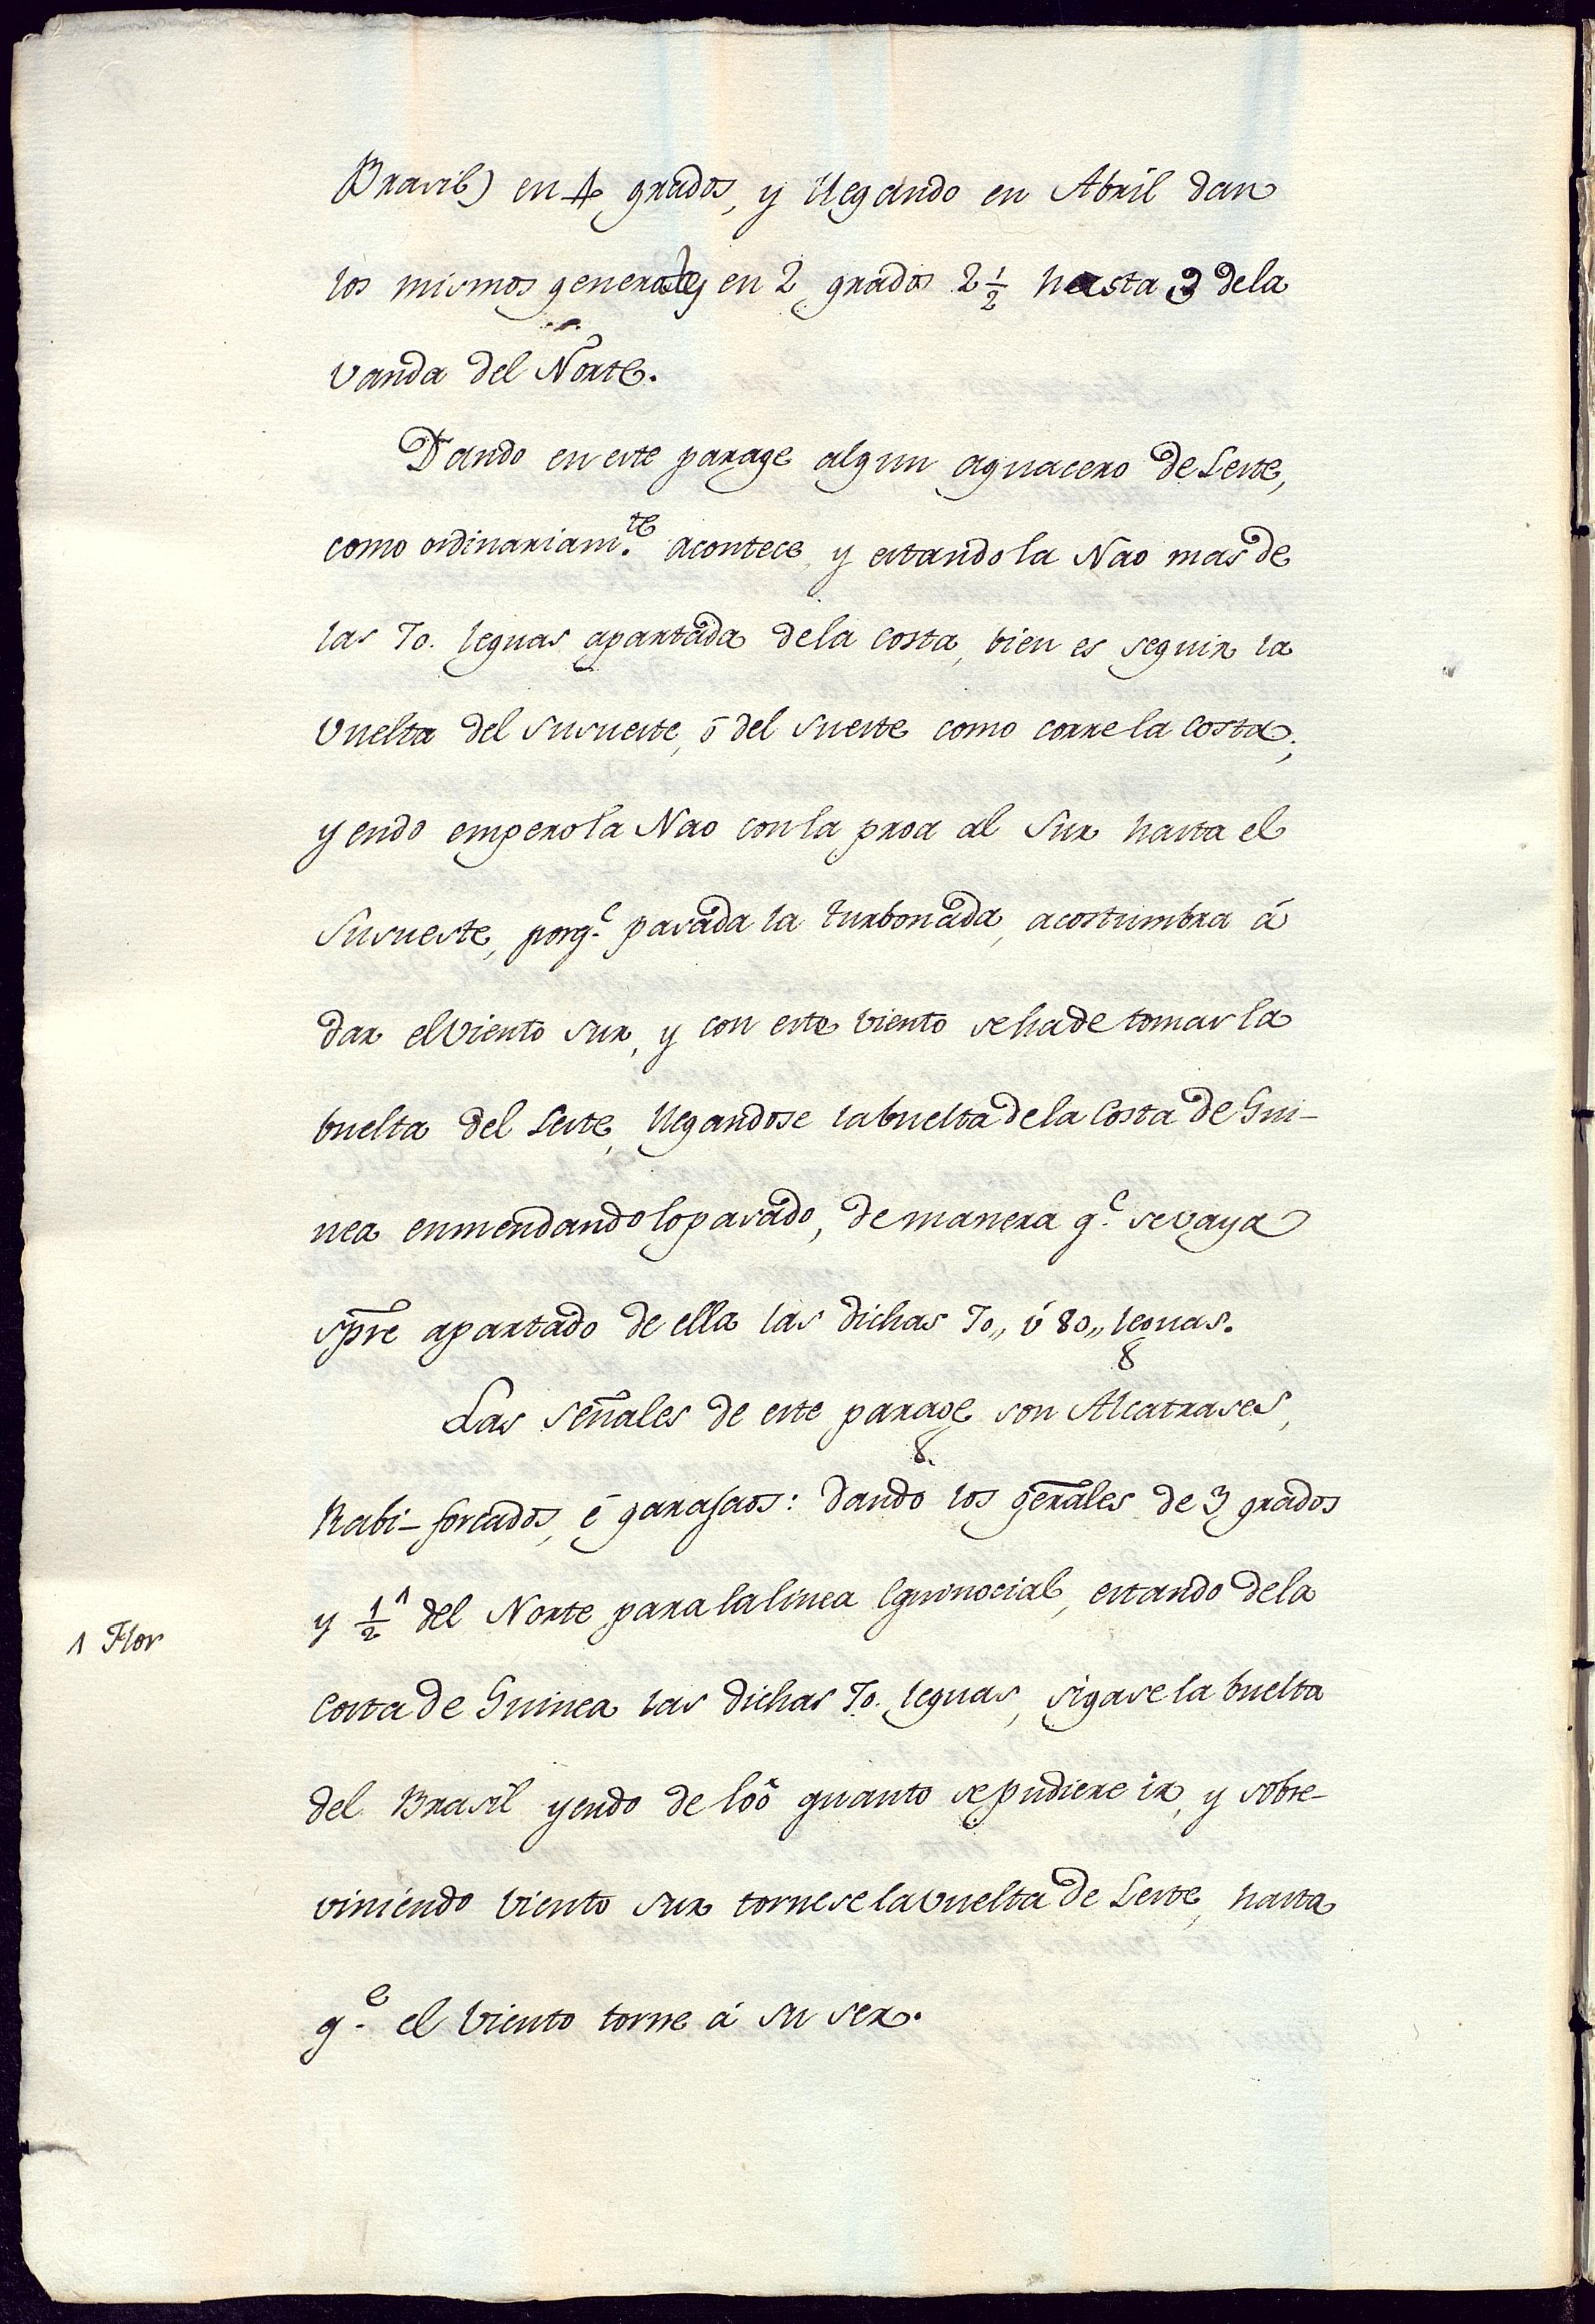 Brasil) en 4 grados, y llegando en Abril dan
los mismos generales en 2 grados 2 1/2 hasta 3 dela
vanda del Norte.
Dando en este parage algun aguacero de Leste,
como ordinariam.te acontece, y estando la Nao mas de
las 70. leguas apartada dela costa, bien es seguir la
vuelta del susueste, ó del sueste como corre la costa;
yendo empero la Nao con la proa al Sur hasta el
Susueste, porq.e pasada la turbonada, acostumbra á
dar el viento sur, y con este viento se ha de tomar la
buelta del Leste, llegandose la buelta de la Costa de Gui-
nea enmendando lo pasado, de manera q.e se vaya
spre apartado de ella las dichas 70,, ú 80,, leguas.
Las señales de este parage son Alcatrases,
Rabi-forcados, é garajaos: dando los genrales de 3 grados
y 1/2 ^ del Norte para la linea Equinocial, estando de la
^ Flor
Costa de Guinea las dichas 70. leguas, sigase la buelta
del Brasil yendo de lóo quanto se pudiere ir, y sobre-
viniendo viento sur tornese la vuelta de Leste, hasta
q.e el viento torne á su ser.